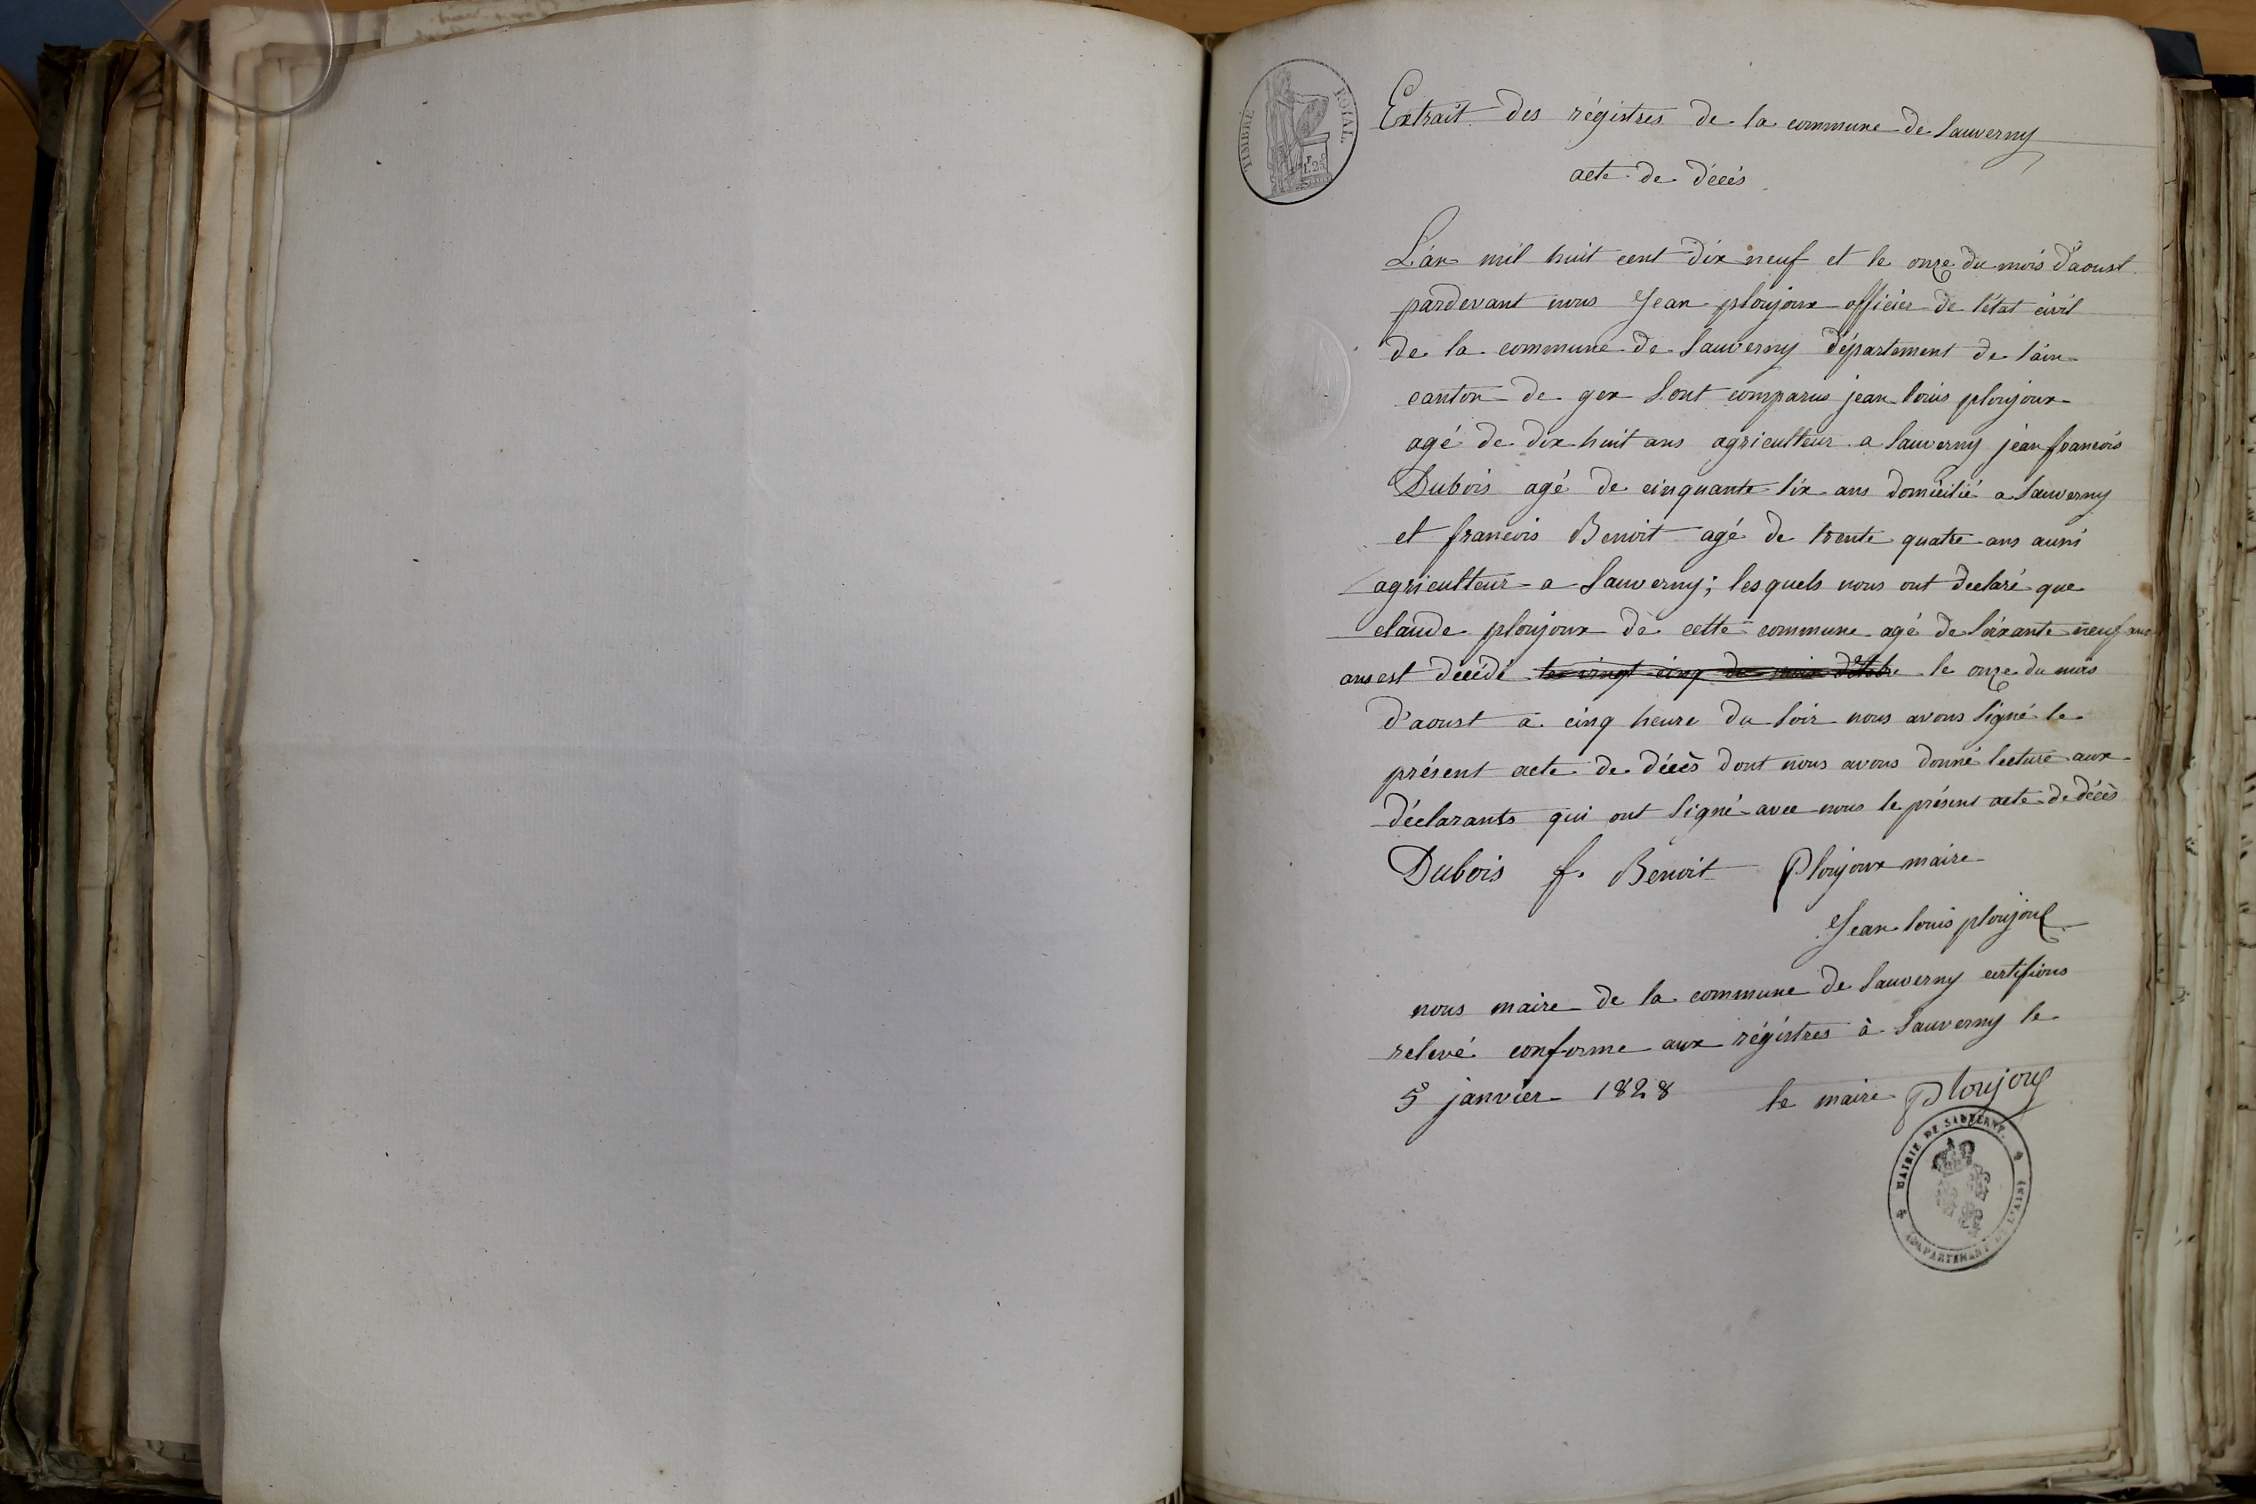 TIMBRE ROYAL
1.25
Extrait des régistres de la commune de Sauverny
acte de décés
L'an mil huit cent dix neuf et le onze du mois d'aoust
pardevant nous Jean ploujoux officier de l'état civil
de la commune de Sauverny département de l'ain
canton de gex Sont comparus jean louis ploujoux
agé de dix huit ans agriculteur a Sauverny jean francois
Dubois agé de cinquante six ans domicilié a Sauverny
et francois Benoit agé de trente quatre ans aussi
agriculteur a Sauverny; lesquels nous ont declaré que
claude ploujoux de cette commune agé de soixante neuf ans
ans est décédé le vingt cinq du mois le onze du mois
d'aoust à cinq heure du soir nous avons signé le
présent acte de décès dont nous avons donné lecture aux
déclarants qui ont signé avec nous le présent acte de décès
Dubois f. Benoit Ploujoux maire
Jean louis ploujoux
nous maire de la commune de Sauverny certifions
relevé conforme aux régistres à Sauverny le
5 janvier 1828 le maire Ploujoux
MAIRIE DE SAUVERNY.
DEPARTEMENT DE L'AIN